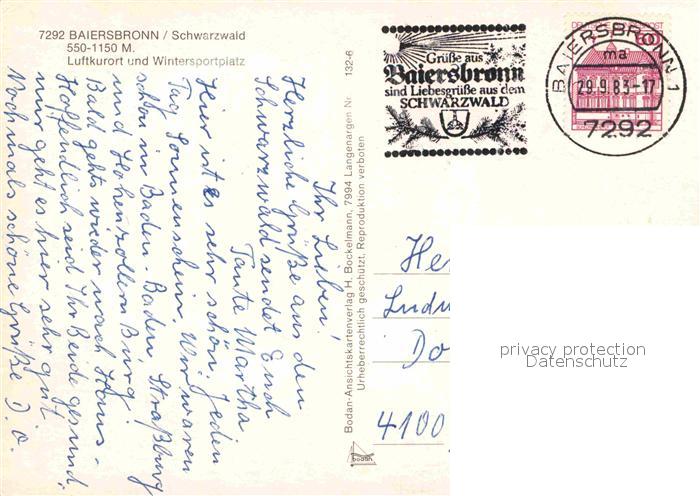 7292 BAIERSBRONN / Schwarzwald
550-1150 M.
Luftkurort und Wintersportplatz
132-6
Bodan-Ansichtskartenverlag H. Bockelmann, 7994 Langenargen Nr.
Urheberrechtlich geschützt. Reproduktion verboten
bodan
Grüße aus
Baiersbronn
sind Liebesgrüße aus dem
SCHWARZWALD
BAIERSBRONN 1
ma
29.9.83-17
7292
60
Ihr Lieben!
Herzliche Grüße aus dem
Schwarzwald sendet Euch
Tante Martha
Hier ist es sehr schön. Jeden
Tag Sonnenschein. Wir waren
schon in Baden-Baden, Straßburg
und Hohenzollern Burg!
Bald gehts wieder nach Haus.
Hoffendlich seid Ihr Beide gesund,
mir geht es hier sehr gut.
Nochmals schöne Grüße D. O.
He
Ludw
Do
4100
privacy protection
Datenschutz